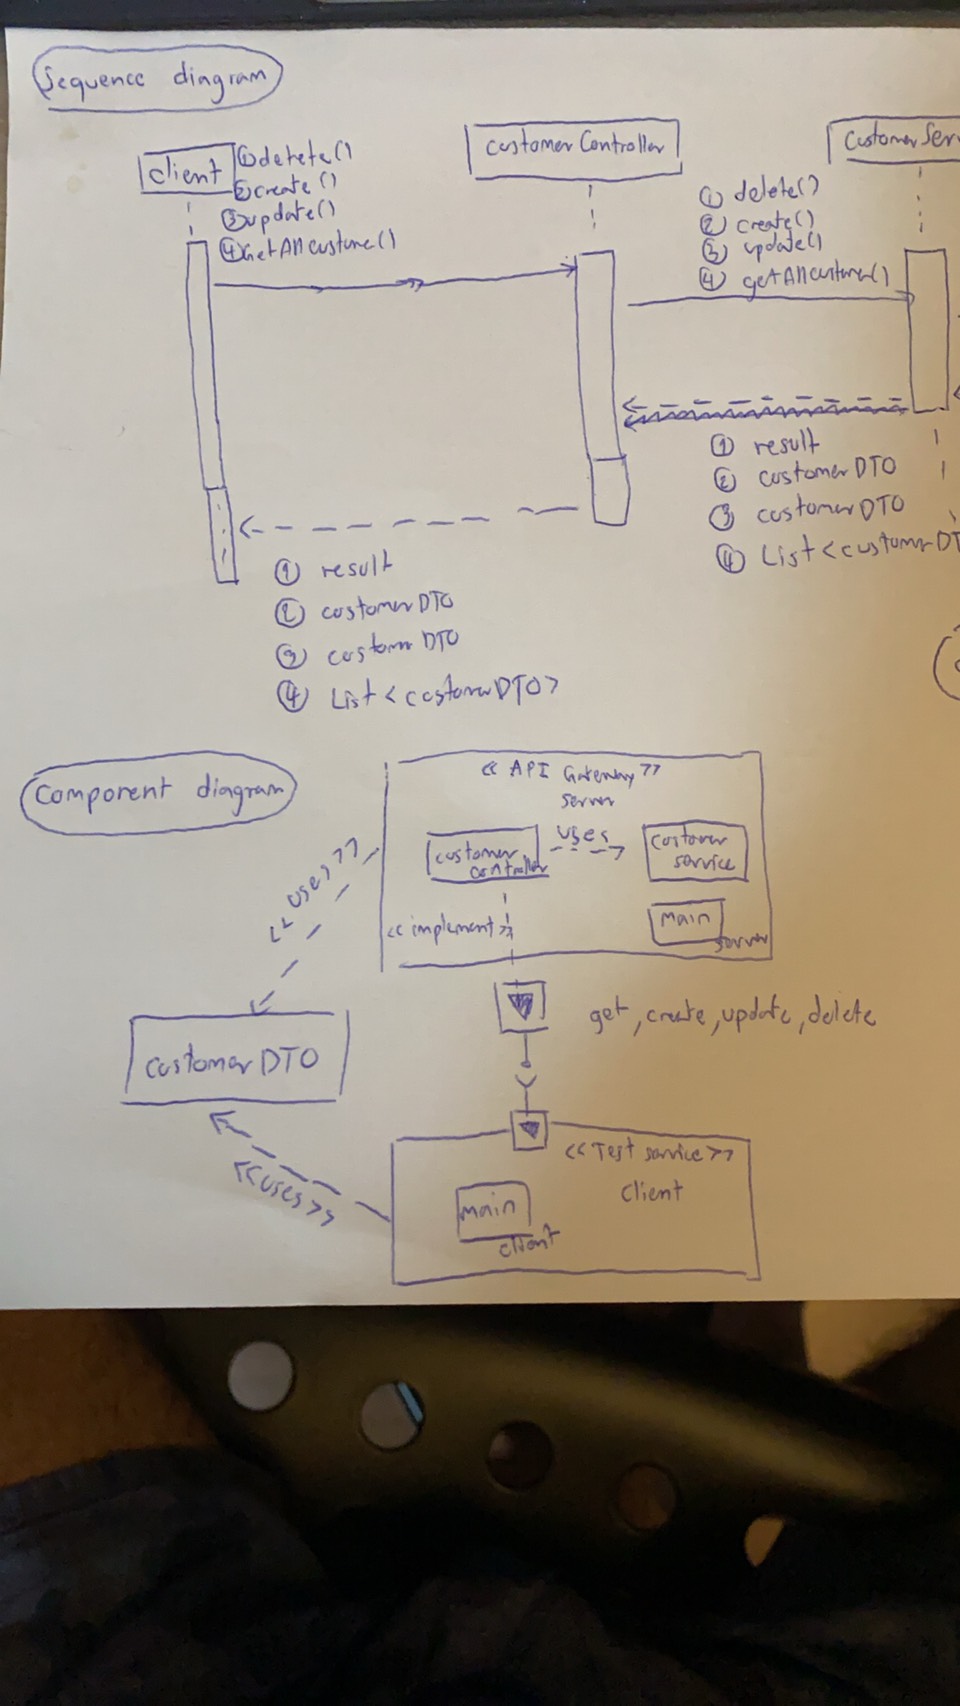 Sequence diagram
client
① delete()
② create()
③ update()
④ GetAllCustome()
customer Controller
Customer Serv
① delete()
② create()
③ update()
④ getAllcustome()
① result
② customer DTO
③ customer DTO
④ List <customer DT
① result
② customer DTO
③ custom DTO
④ List <customer DTO>
Component diagram
<< API Gateway >>
server
customer
controller
uses
customer
service
main
server
<< use >>
<< implement >>
get, create, update, delete
customer DTO
<< Test service >>
client
<< uses >>
main
client